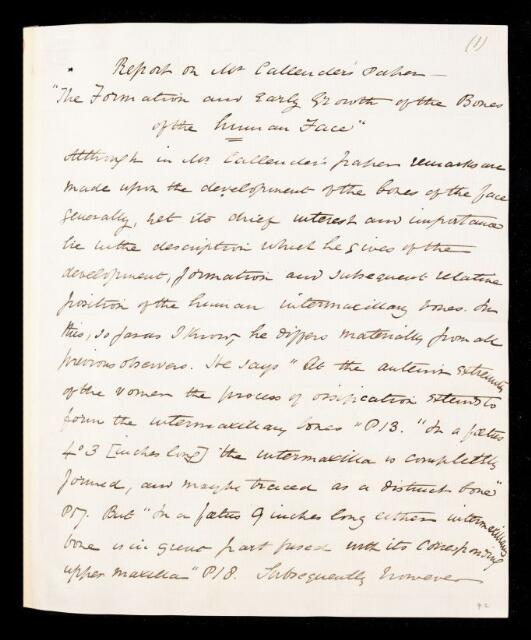 (1)
Report on Mr Callender's Paper —
"The Formation and Early Growth of the Bones
of the human Face"
Although in Mr Callender's paper remarks are
made upon the development of the bones of the face
generally, yet its chief interest and importance
lie in the description which he gives of the
development, formation and subsequent relative
position of the human intermaxillary bones. In
this, so far as I know, he differs materially from all
previous observers. He says "At the anterior extremity
of the vomer the process of ossification extends to
form the intermaxillary bones" P13. "In a fœtus
4.3 [inches long] the intermaxilla is completely
formed, and may be traced as a distinct bone"
P17. But "In a fœtus 9 inches long either intermaxillary
bone is in great part fused with its corresponding
upper maxilla" P18. Subsequently however